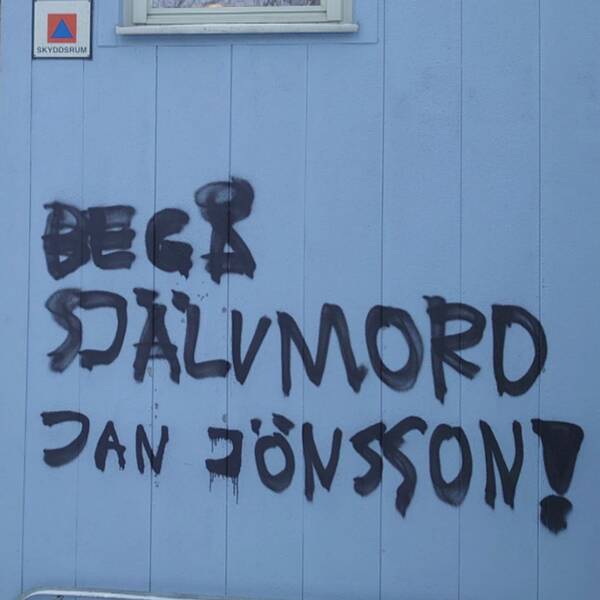 SKYDDSRUM
BEGÅ
SJÄLVMORD
JAN JÖNSSON!